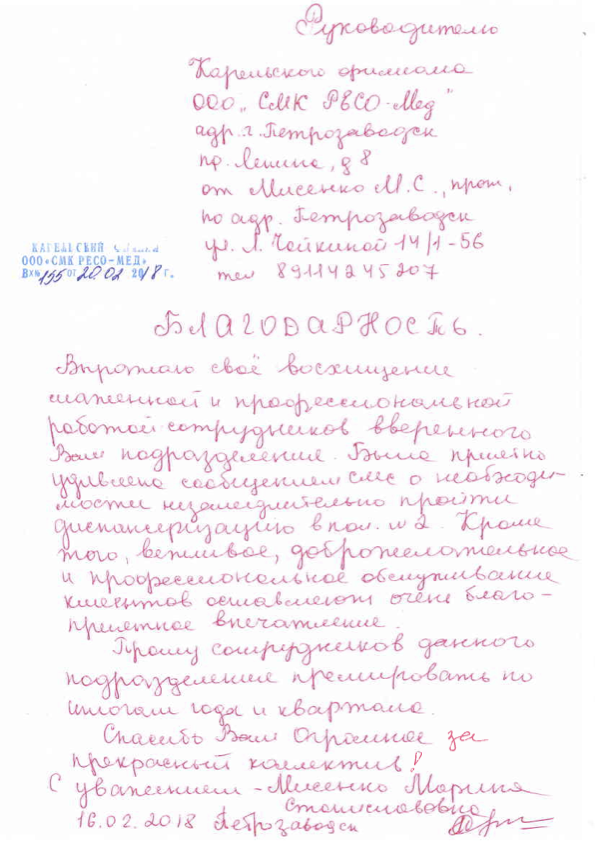 Руководителю
Карельского филиала
ООО „СМК РЕСО-Мед"
адр. г. Петрозаводск
пр. Ленина, д 8
от Мисенко М.С., прож.
по адр. Петрозаводск
ул. Л. Чайкиной 14/1-56
тел 89114245207
КАРЕЛЬСКИЙ
ООО «СМК РЕСО-МЕД»
Вх№ 155 от 20.02 2018 г.
БЛАГОДАРНОСТЬ.
Выражаю своё восхищение
слаженной и профессиональной
работой сотрудников вверенного
Вам подразделения. Была приятно
удивлена сообщением смс о необходи-
мости незамедлительно пройти
диспансеризацию в пол. №2. Кроме
того, вежливое, доброжелательное
и профессиональное обслуживание
клиентов оставляют очень благо-
приятное впечатление.
Прошу сотрудников данного
подразделения премировать по
итогам года и квартала.
Спасибо Вам Огромное за
прекрасный коллектив!
С уважением - Мисенко Марина
Станиславовна
16.02.2018 Петрозаводск